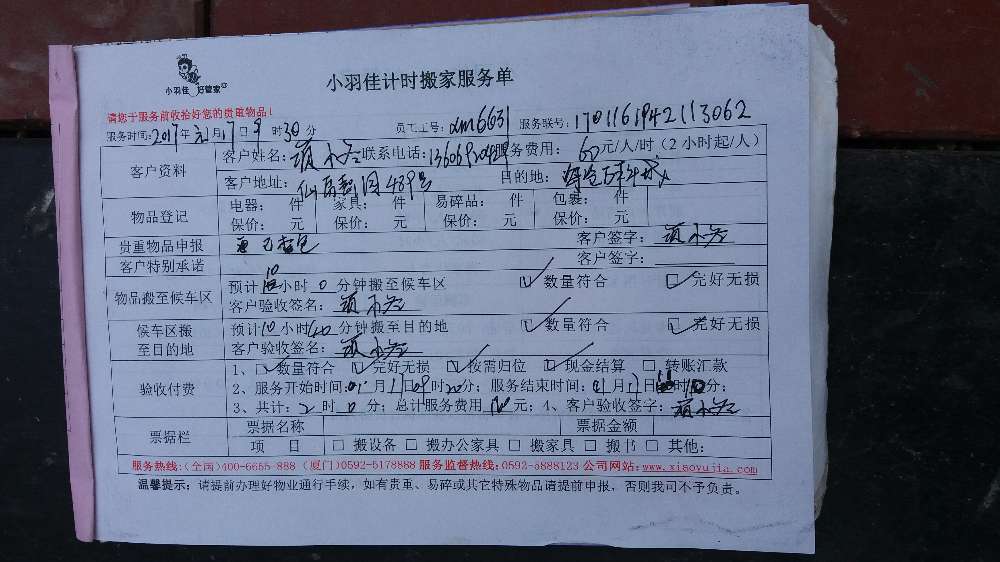 小羽佳 好管家
小羽佳计时搬家服务单
请您于服务前收拾好您的贵重物品!
服务时间:2017年元月17日9时30分 员工工号:xm6631 服务联号:1701161942113062
客户资料 客户姓名: 联系电话: 服务费用:60元/人/时(2小时起/人)
客户地址:仙岳 489号 目的地:
物品登记 电器: 件 家具: 件 易碎品: 件 包裹: 件
保价: 元 保价: 元 保价: 元 保价: 元
贵重物品申报 已 客户签字:
客户特别承诺 客户签字:
物品搬至候车区 预计 小时0分钟搬至候车区 数量符合 完好无损
客户验收签名:
候车区搬至目的地 预计10小时40分钟搬至目的地 数量符合 完好无损
客户验收签名:
验收付费 1、 数量符合 完好无损 按需归位 现金结算 转账汇款
2、服务开始时间:01月17日09时20分; 服务结束时间:01月17日 时 分;
3、共计:2时0分; 总计服务费用 元; 4、客户验收签字:
票据栏 票据名称 票据金额
项 目 搬设备 搬办公家具 搬家具 搬书 其他:
服务热线:(全国)400-6655-888 (厦门)0592-5178888 服务监督热线:0592-5888123 公司网站:www.xiaoyujia.com
温馨提示:请提前办理好物业通行手续,如有贵重、易碎或其它特殊物品请提前申报,否则我司不予负责。